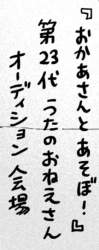 『おかあさんとあそぼ!』
第23代 うたのおねえさん
オーディション会場